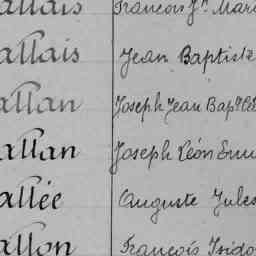 allais François Jn Mari
allais Jean Baptiste
allan Joseph Jean Bapte
allan Joseph Léon Emm
allée Auguste Jules
allon François Isido